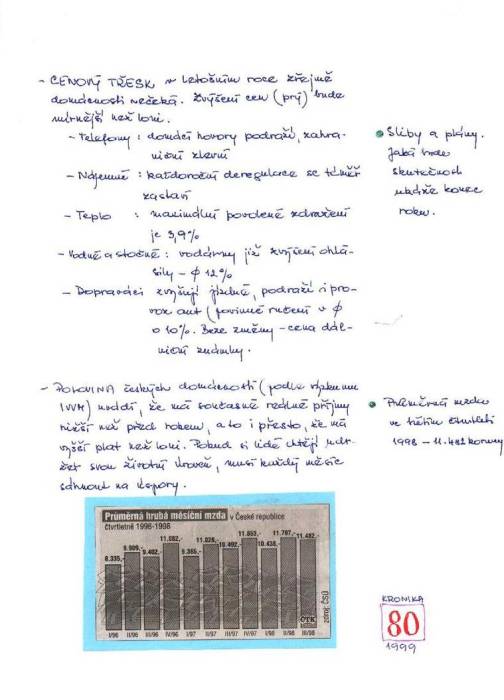 - CENOVÝ TŘESK v letošním roce zřejmě
domácnosti nečeká. Zvýšení cen (prý) bude
mírnější než loni.
- Telefony : domácí hovory podraží, zahra-
niční zlevní
- Nájemné : každoroční deregulace se téměř
zastaví
- Teplo : maximální povolené zdražení
je 3,9%
- Vodné a stočné : vodárny již zvýšení ohlá-
sily - φ 12%
- Dopraváci zvyšují jízdné, podraží i pro-
voz aut (povinné ručení v φ
o 10%. Beze změny - cena dál-
niční známky.
Sliby a plány.
Jaká bude
skutečnost
ukáže konec
roku.
- POLOVINA českých domácností (podle výzkumu
IVVM) uvádí, že má současné reálné příjmy
nižší než před rokem, a to i přesto, že má
vyšší plat než loni. Pokud si lidé chtějí udr-
žet svou životní úroveň, musí každý měsíc
sáhnout na úspory.
Průměrná mzda
ve třetím čtvrtletí
1998 - 11.482 koruny
Průměrná hrubá měsíční mzda v České republice
čtvrtletně 1996-1998
8.335,- 9.909,- 9.402,- 11.082,- 9.365,- 11.028,- 10.492,- 11.853,- 10.438,- 11.707,- 11.482,-
I/96 II/96 III/96 IV/96 I/97 II/97 III/97 IV/97 I/98 II/98 III/98
ČTK
zdroj: ČSÚ
KRONIKA
80
1999